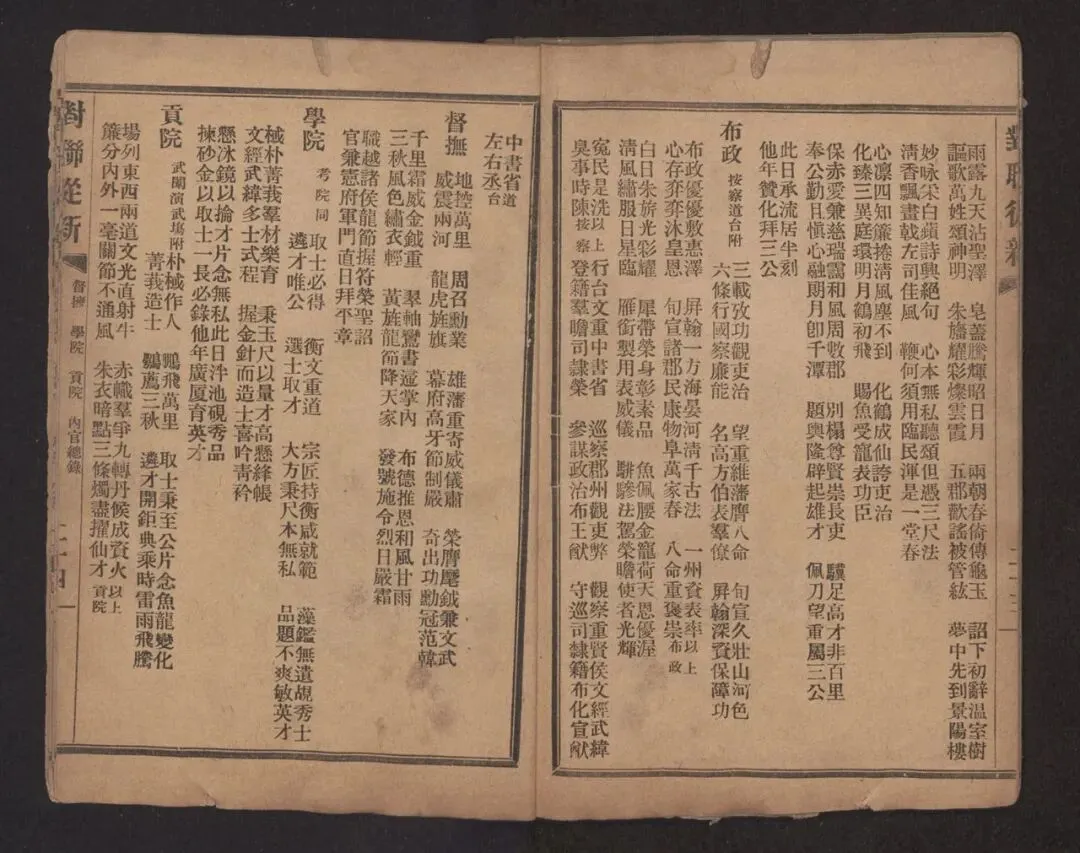 對聯從新
雨露九天沾聖澤　皂蓋騰輝昭日月　兩朝春倚傳龜玉　詔下初辭溫室樹
謳歌萬姓頌神明　朱旛耀彩燦雲霞　五郡歡謠被管絃　夢中先到景陽樓
妙咏朱白蘋詩興絕句　心本無私聽頌但憑三尺法
清香飄畫戟左司佳風　鞭何須用臨民渾是一堂春
心凜四知簾捲清風塵不到　化鶴成仙誇吏治
化臻三異庭環明月鶴初飛　賜魚受寵表功臣
保赤愛兼慈瑞靄和風周數郡　別榻尊賢崇長吏　驥足高才非百里
奉公勤且愼心融朗月卽千潭　題輿隆辟起雄才　佩刀望重屬三公
此日承流居半刻
他年贊化拜三公
布政　按察道台附　三載攷功觀吏治　望重維藩膺八命　旬宣久壯山河色
六條行國察廉能　名高方伯表羣僚　屏翰深資保障功
布政優優敷惠澤　屏翰一方海晏河清千古法　一州資表率以上
心存弈弈沐皇恩　旬宣諸郡民康物阜萬家春　八命重褒崇布政
白日朱旂光彩耀　犀帶榮身彰素品　魚佩腰金寵荷天恩優渥
清風繡服日星臨　雁銜製用表威儀　騑驂法駕榮瞻使者光輝
冤民是洗以上　行台文重中書省　巡察郡州觀吏弊　觀察重賢侯文經武緯
臬事時陳按察　登籍羣瞻司隸榮　參謀政治布王猷　守巡司隸籍布化宣猷
中書省道
左右丞台
督撫　地控萬里　周召勳業　雄藩重寄威儀肅　榮膺麾鉞兼文武
威震兩河　龍虎旌旗　幕府高牙節制嚴　奇出功勳冠范韓
千里霜威金鉞重　翠軸鸞書遙掌內　布德推恩和風甘雨
三秋風色繡衣輕　黃旌龍節降天家　發號施令烈日嚴霜
職越諸侯龍節握符榮聖詔
官兼憲府軍門直日拜平章
學院　考院同　取士必得　衡文重道　宗匠持衡咸就範　藻鑑無遺覘秀士
遴才唯公　選士取才　大方秉尺本無私　品題不爽敏英才
棫朴菁莪羣材樂育　秉玉尺以量才高懸絳帳
文經武緯多士式程　握金針而造士喜吟靑衿
懸冰鏡以掄才片念無私此日泮池硯秀品
揀砂金以取士一長必錄他年廣厦育英才
貢院　武闈演武塲附　朴棫作人　鵬飛萬里　取士秉至公片念魚龍變化
菁莪造士　鶚薦三秋　遴才開鉅典乘時雷雨飛騰
場列東西兩道文光直射牛　赤幟羣爭九轉丹候成資火以上
簾分內外一毫關節不通風　朱衣暗點三條燭盡擢仙才貢院
對聯從新　督撫　學院　貢院　內官總錄